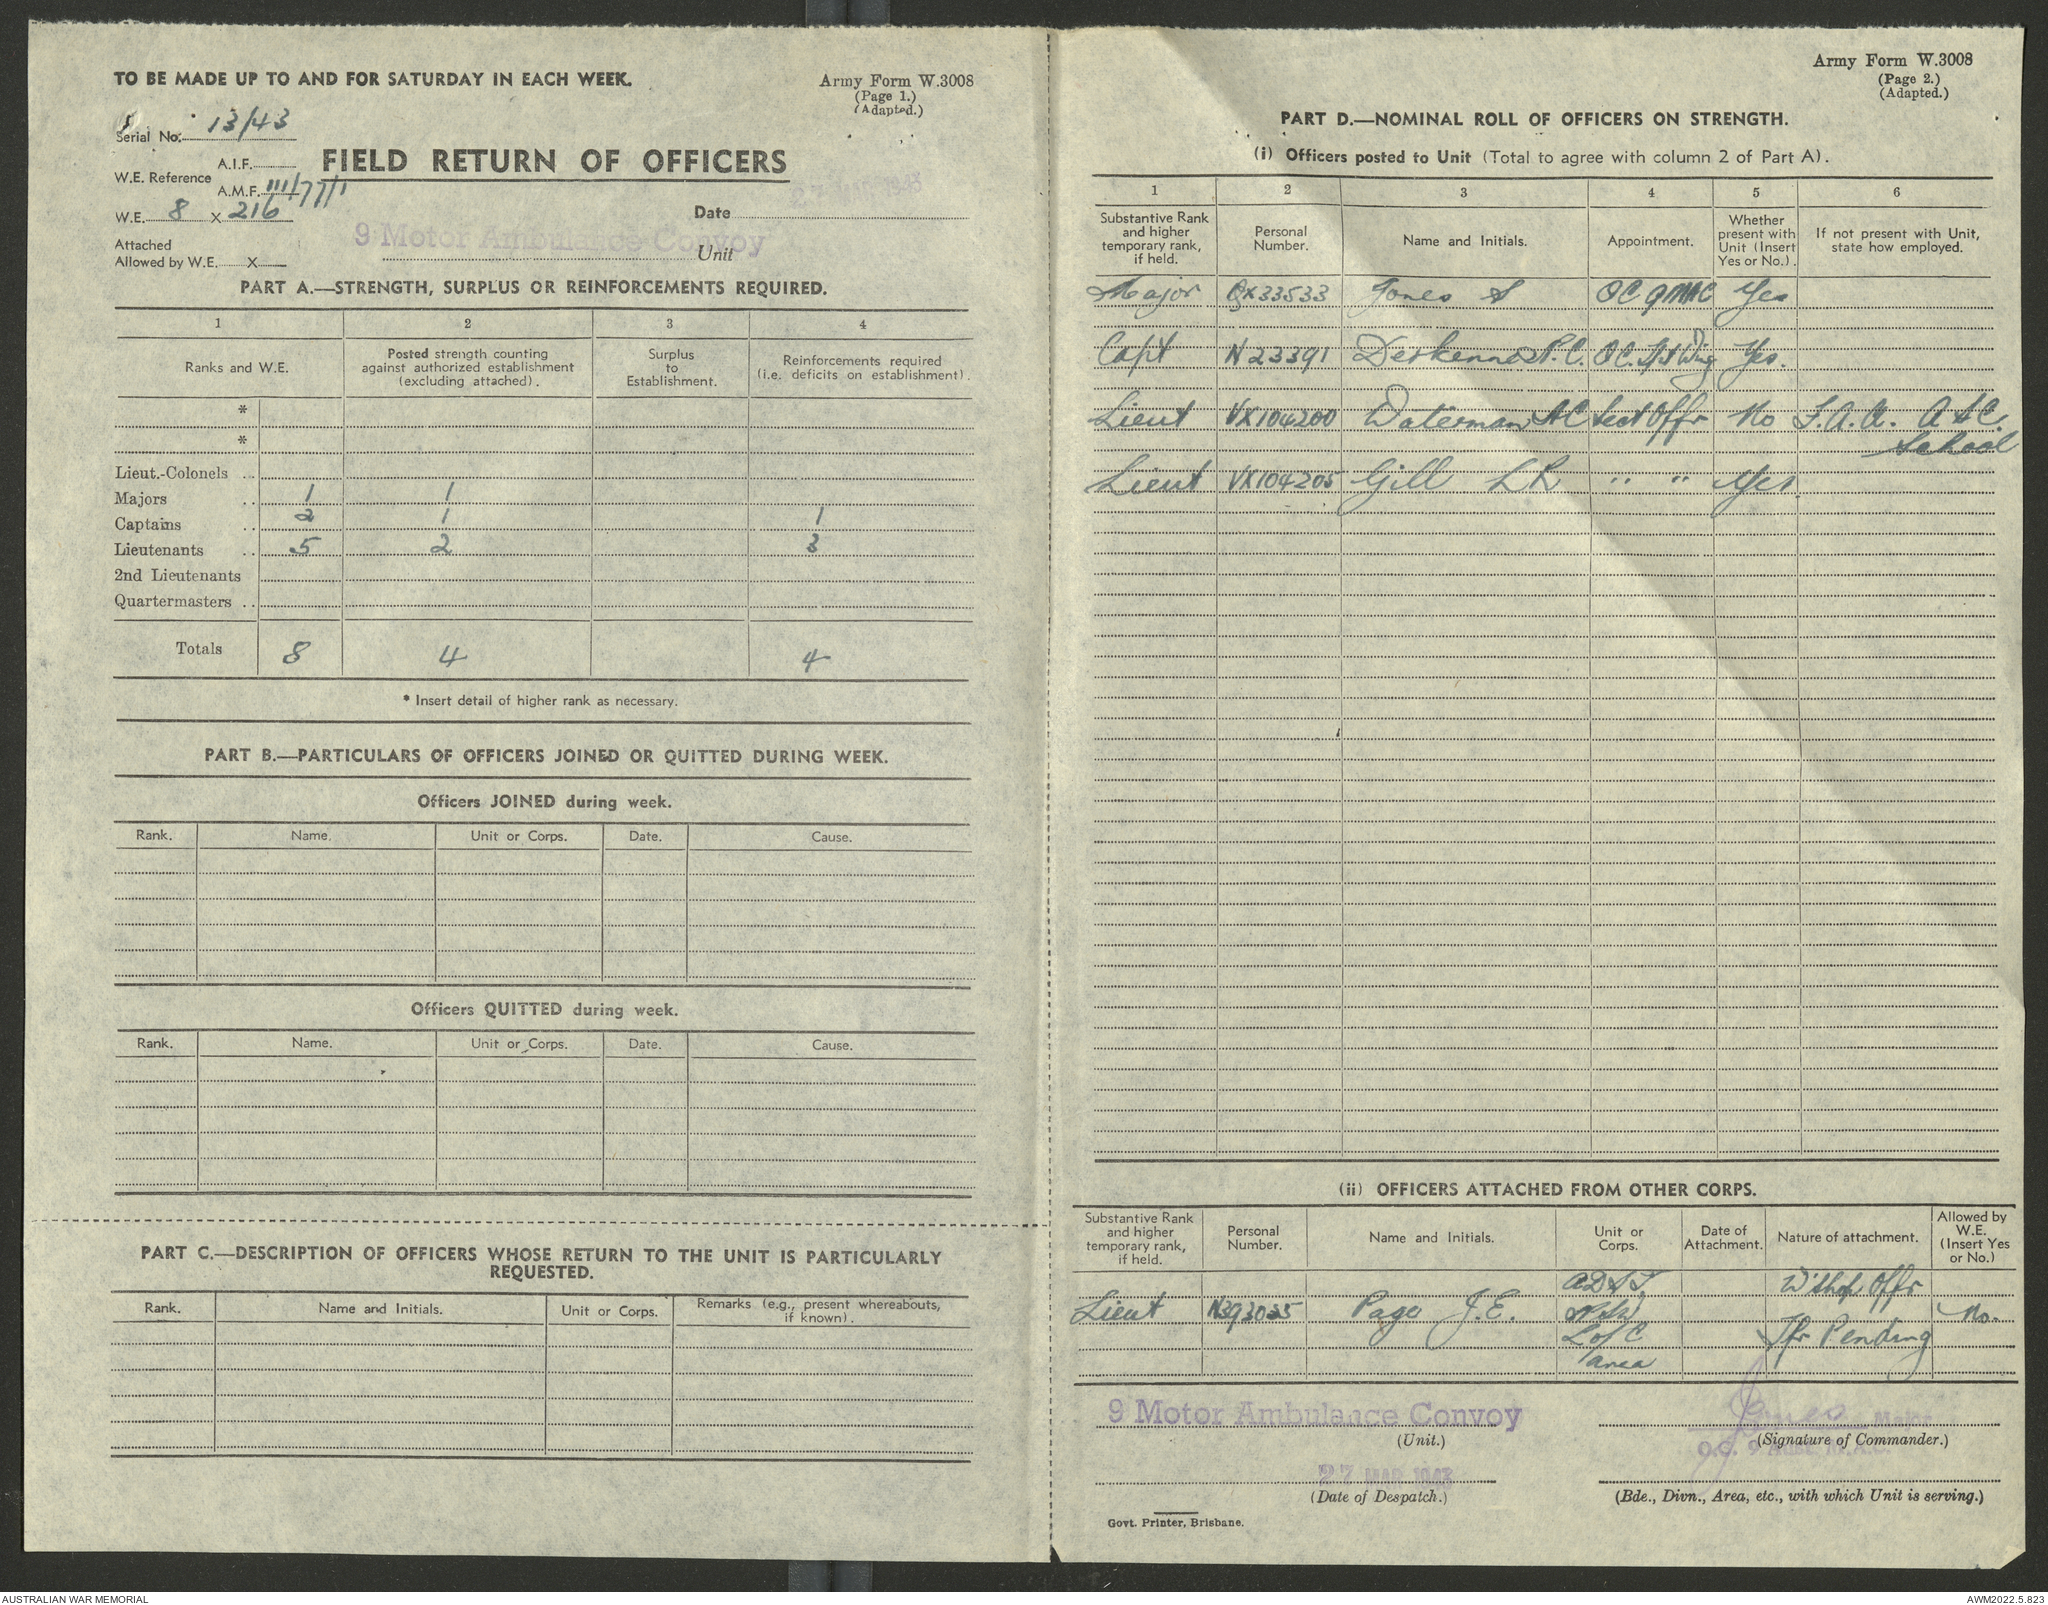 TO BE MADE UP TO AND FOR SATURDAY IN EACH WEEK.
Army Form W.3008
(Page 1.)
(Adapted.)
Serial No. 13/43
A.I.F.
W.E. Reference
A.M.F. III/77/1
FIELD RETURN OF OFFICERS
W.E. 8 X 216
27 MAR 1943
Date
Attached
Allowed by W.E. X
9 Motor Ambulance Convoy
Unit
PART A.—STRENGTH, SURPLUS OR REINFORCEMENTS REQUIRED.
1 2 3 4
Ranks and W.E.
Posted strength counting
against authorized establishment
(excluding attached).
Surplus
to
Establishment.
Reinforcements required
(i.e. deficits on establishment).
*
*
Lieut.-Colonels ..
Majors .. 1 1
Captains .. 2 1 1
Lieutenants .. 5 2 3
2nd Lieutenants
Quartermasters ..
Totals 8 4 4
* Insert detail of higher rank as necessary.
PART B.—PARTICULARS OF OFFICERS JOINED OR QUITTED DURING WEEK.
Officers JOINED during week.
Rank. Name. Unit or Corps. Date. Cause.
Officers QUITTED during week.
Rank. Name. Unit or Corps. Date. Cause.
PART C.—DESCRIPTION OF OFFICERS WHOSE RETURN TO THE UNIT IS PARTICULARLY
REQUESTED.
Rank. Name and Initials. Unit or Corps. Remarks (e.g., present whereabouts,
if known).
Army Form W.3008
(Page 2.)
(Adapted.)
PART D.—NOMINAL ROLL OF OFFICERS ON STRENGTH.
(i) Officers posted to Unit (Total to agree with column 2 of Part A).
1 2 3 4 5 6
Substantive Rank
and higher
temporary rank,
if held.
Personal
Number.
Name and Initials.
Appointment.
Whether
present with
Unit (Insert
Yes or No.).
If not present with Unit,
state how employed.
Major QX33533 Jones S OC 9 MAC Yes
Capt N23391 P.C. OC. Wing Yes.
Lieut VX104200 Waterman AC Sect Offr No
School
Lieut VX104205 Gill LR " " Yes.
(ii) OFFICERS ATTACHED FROM OTHER CORPS.
Substantive Rank
and higher
temporary rank,
if held.
Personal
Number.
Name and Initials.
Unit or
Corps.
Date of
Attachment.
Nature of attachment.
Allowed by
W.E.
(Insert Yes
or No.)
W'shop Offr
Lieut N393025 Page J.E. No.
L of C Tfr Pending
area
9 Motor Ambulance Convoy
(Unit.)
Jones Major
(Signature of Commander.)
27 MAR 1943
(Date of Despatch.)
(Bde., Divn., Area, etc., with which Unit is serving.)
Govt. Printer, Brisbane.
AUSTRALIAN WAR MEMORIAL
AWM2022.5.823